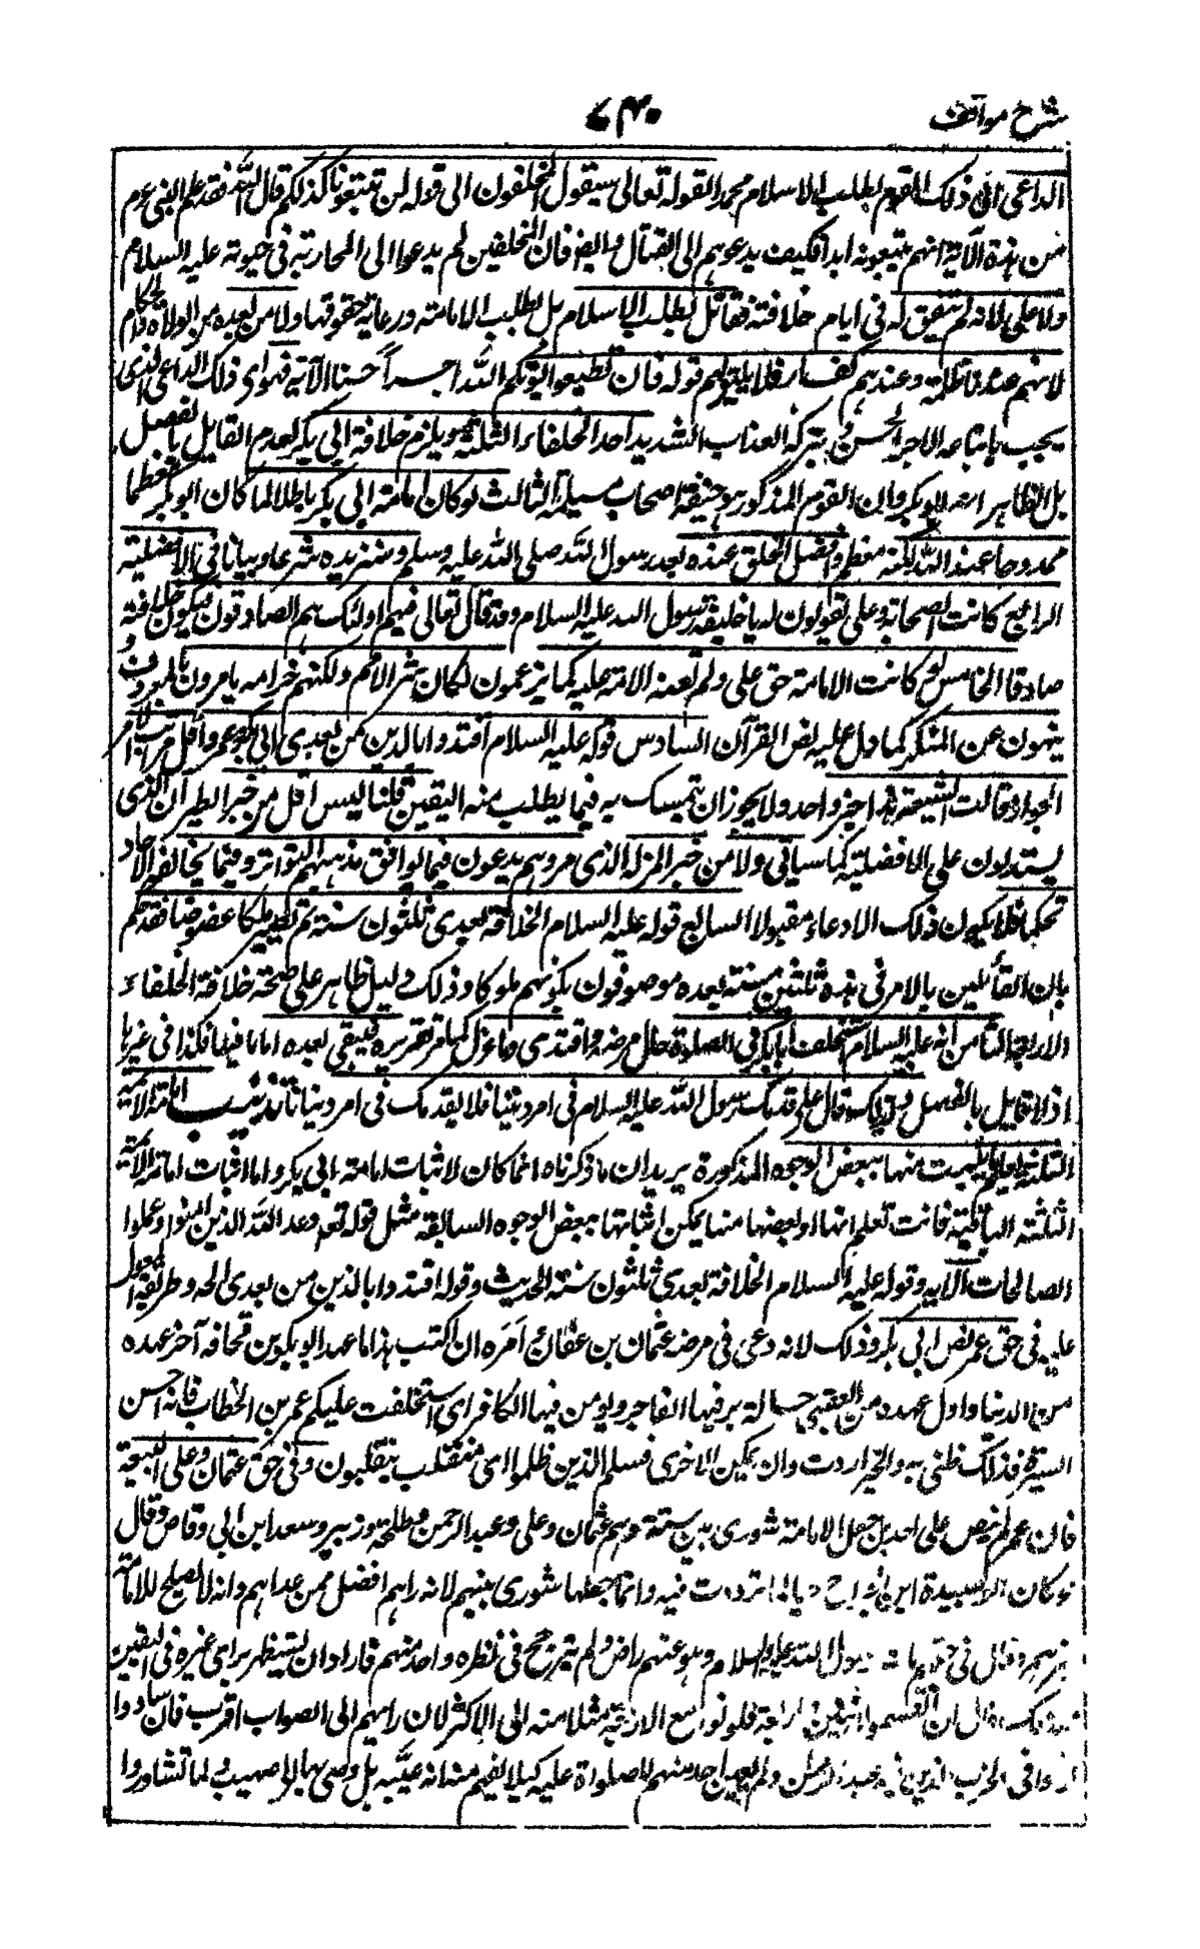 شرح مواقف
٧٤٠
الداعى الى ذلك القوم لطلب الاسلام محمدا لقوله تعالى سيقول المخلفون الى قوله لن تتبعونا كذلكم قال الله فقد علم النبى عم
من هذه الآية انهم لا يتبعونه ابدا فكيف يدعوهم الى القتال وايض فان المخلفين لم يدعوا الى المحاربة فى حيوته عليه السلام
ولا على لانه لم يتفق له فى ايام خلافته قتال لطلب الاسلام بل لطلب الامامة ورعاية حقوقها ولا من بعده من الولاة والحكام
لانهم عندنا ظلمة وعندهم كفار فلا يليق بهم قوله فان تطيعوا يؤتكم الله اجرا حسنا الآية فهو اى ذلك الداعى الذى
يجب باتباعه الاجر الحسن وبتركه العذاب الشديد احد الخلفاء الثلثة ويلزم خلافة ابى بكر لعدم القايل بالفصل
بل الظاهر انه ابو بكر وان القوم المذكور بنو حنيفة اصحاب مسيلمة الثالث لو كان امامة ابى بكر باطلا لما كان ابو بكر معظما
ممدوحا عند الله لكنه معظم وافضل الخلق عنده بعد رسول الله صلى الله عليه وسلم وسنزيده شرحا وبيانا فى الافضلية
الرابع كانت الصحابة وعلى يقولون له يا خليفة رسول الله عليه السلام وقد قال تعالى فيهم اولئك هم الصادقون فيكون خلافته
صادقا الخامس لو كانت الامامة حق على ولم تعنه الامة عليه كما يزعمون لكان شر الامم ولكنهم خير امة يامرون بالمعروف و
ينهون عن المنكر كما دل عليه نص القرآن السادس قوله عليه السلام اقتدوا بالذين من بعدى ابى بكر وعمر واقل مراتب الامر
الجواز قالت الشيعة هذا خبر واحد ولا يجوز ان يتمسك به فيما يطلب منه اليقين قلنا ليس اقل من خبر الطير ان الذى
يستدلون على الافضلية كما سياتى ولا من خبر المنزلة الذى مر وهم يدعون فيما يوافق مذهبهم التواتر وفيما يخالفه الآحاد
تحكما فلا يكون ذلك الادعاء مقبولا السابع قوله عليه السلام الخلافة بعدى ثلثون سنة ثم تصير ملكا عضوضا فقد حكم
بان القائلين بالامر فى هذه ثلثين سنة بعده موصوفون بكونهم ملوكا وذلك دليل ظاهر على صحة خلافة الخلفاء
الاربعة الثامن انه عليه السلام استخلف ابا بكر فى الصلوة حال مرضه واقتدى به وما عزله كما مر تقريره فيبقى بعده اماما فيها فكذا فى غيرها
اذ لا قايل بالفصل ولذلك قال على قدمك رسول الله عليه السلام فى امر ديننا فلا نقدمك فى امر دنيانا تذنيب امامة الائمة
الثلثة يثبت منها ببعض الوجوه المذكورة يريد ان ما ذكرناه انما كان لاثبات امامة ابى بكر واما اثبات امامة الائمة
الثلثة الباقية فانت تعلم انها او بعضها منها يمكن اثباتها ببعض الوجوه السابقة مثل قوله تعم وعد الله الذين آمنوا وعملوا
الصالحات الآية وقوله عليه السلام الخلافة بعدى ثلثون سنة الحديث وقوله اقتدوا بالذين من بعدى الخ وطريقه المعول
عليه فى حق عمر نص ابى بكر وذلك لانه دعى فى مرضه عثمان بن عفان وامره ان اكتب هذا ما عهد ابو بكر بن قحافة آخر عهده
من الدنيا واول عهده من العقبى حالة يبر فيها الفاجر ويؤمن فيها الكافر اى استخلفت عليكم عمر بن الخطاب فانه احسن
السيرة فذلك ظنى به والخير اردت وان يكن الاخرى فسيعلم الذين ظلموا اى منقلب ينقلبون وفى حق عثمان وعلى البيعة
فان عمر لم ينص على احد بل جعل الامامة شورى بين ستة وهم عثمان وعلى وعبد الرحمن وطلحة وزبير وسعد ابن ابى وقاص وقال
لو كان ابو عبيدة ابن الجراح حيا لما ترددت فيه وانما جعلها شورى بينهم لانه راهم افضل ممن عداهم وانه لا يصلح للامامة
غيرهم وقال فى حقهم مات رسول الله عليه السلام وهو عنهم راض ولم يترجح فى نظره واحد منهم فاراد ان يستظهر براى غيره فى التعيين
ولذلك قال ان انقسموا اثنين واربعة فكونوا مع الاربعة ميلا منه الى الاكثر لان رايهم الى الصواب اقرب فان تساووا
فكونوا فى الحزب الذين فيه عبد الرحمن ولم يعين احد منهم للصلوة عليه كيلا يفهم منه انه عينه بل وصى بها الى صهيب ولما تشاوروا